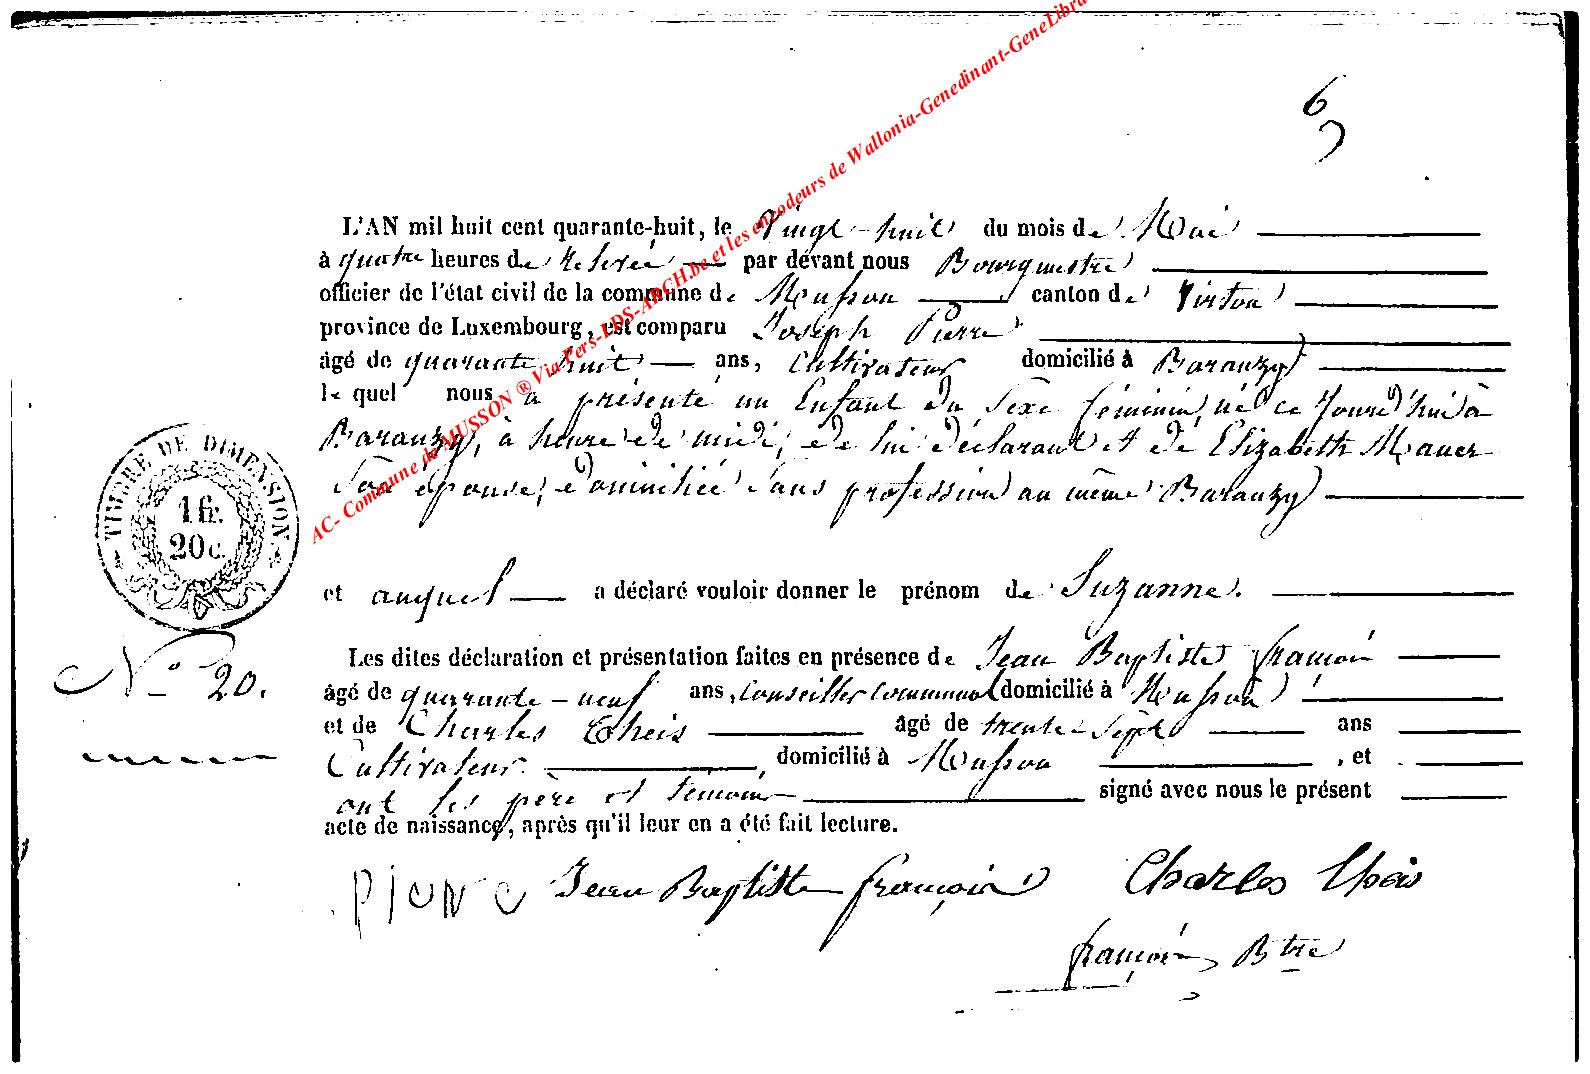 6
AC- Commune de MUSSON ® Via Pers-LDS-ARCH.be et les encodeurs de Wallonia-Genedinant-GeneLibra
L'AN mil huit cent quarante-huit, le Vingt-huit du mois de Mai
à quatre heures de relevée par devant nous Bourgmestre
officier de l'état civil de la commune de Musson canton de Virton
province de Luxembourg, est comparu Joseph Pierre
âgé de quarante huit ans, Cultivateur domicilié à Baranzy
le quel nous a présenté un Enfant du Sexe féminin, né ce Jourd'hui à
Baranzy, à heure de midi, de lui déclarant et de Elizabeth Mauer
Son épouse, domiciliée sans profession au même Baranzy
TIMBRE DE DIMENSION
1 fr.
20 c.
et auquel a déclaré vouloir donner le prénom de Suzanne.
Les dites déclaration et présentation faites en présence de Jean Baptiste françois
N° 20.
âgé de quarante-neuf ans, Conseiller Communal domicilié à Musson
et de Charles Theis âgé de trente-sept ans
Cultivateur, domicilié à Musson, et
ont les père et témoins signé avec nous le présent
acte de naissance, après qu'il leur en a été fait lecture.
Jean Baptiste françois Charles Theis
françois Btre